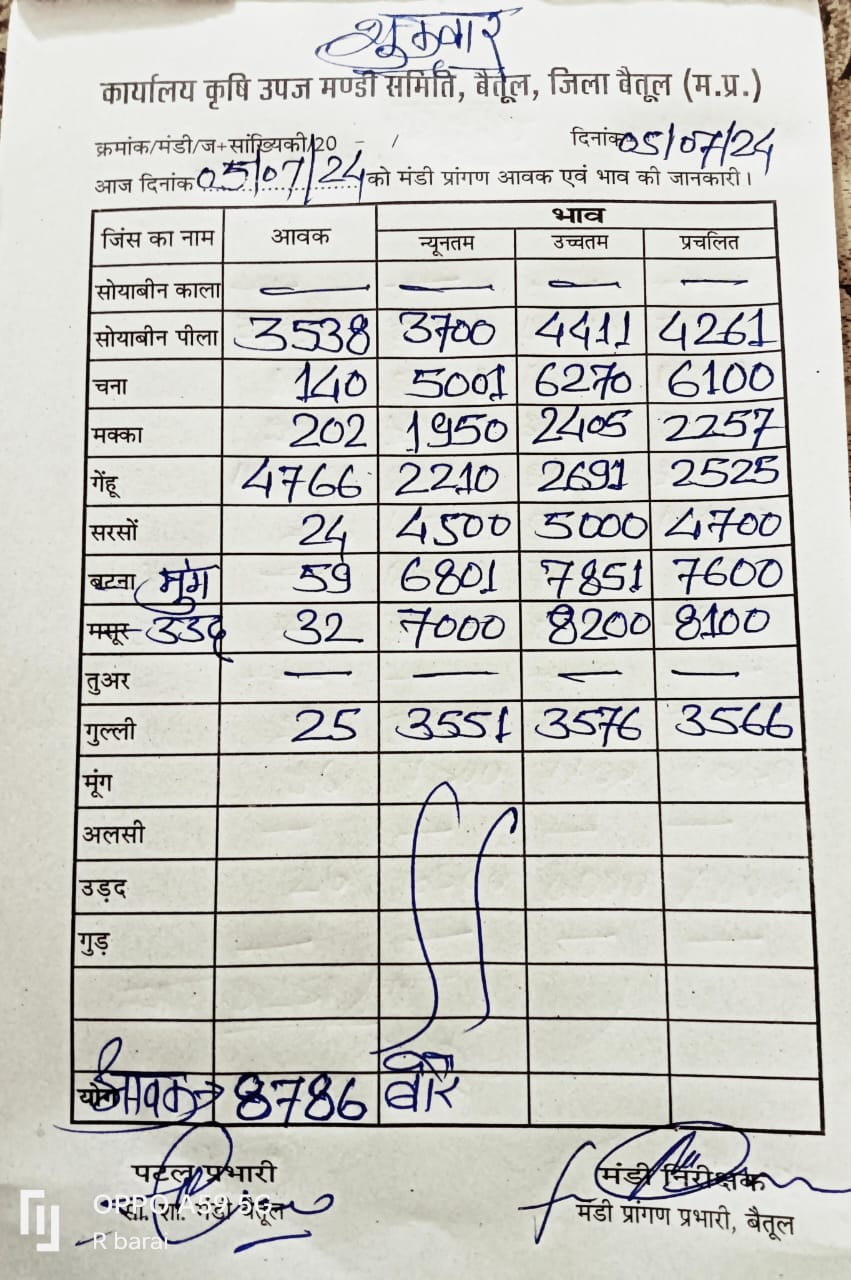 शुक्रवार
कार्यालय कृषि उपज मण्डी समिति, बैतूल, जिला बैतूल (म.प्र.)
क्रमांक/मंडी/ज+सांख्यिकी/20 - / दिनांक 05/07/24
आज दिनांक 05/07/24 को मंडी प्रांगण आवक एवं भाव की जानकारी।
जिंस का नाम आवक भाव
न्यूनतम उच्चतम प्रचलित
सोयाबीन काला — — — —
सोयाबीन पीला 3538 3700 4411 4261
चना 140 5001 6270 6100
मक्का 202 1950 2405 2257
गेंहू 4766 2210 2691 2525
सरसों 24 4500 5000 4700
बटना मुंग 59 6801 7851 7600
मसूर उडद 32 7000 8200 8100
तुअर — — — —
गुल्ली 25 3551 3576 3566
मूंग
अलसी
उड़द
गुड़
योग आवक → 8786 बोरे
पटल प्रभारी मंडी निरीक्षक
मंडी बैतूल मंडी प्रांगण प्रभारी, बैतूल
OPPO A59 5G
R barai